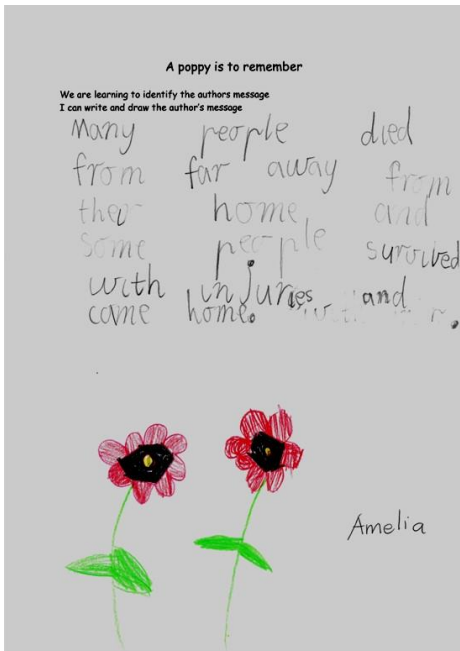 A poppy is to remember
We are learning to identify the authors message
I can write and draw the author's message
Many people died
from far away from
ther home and
some people survived
with injuries and
came home.
Amelia